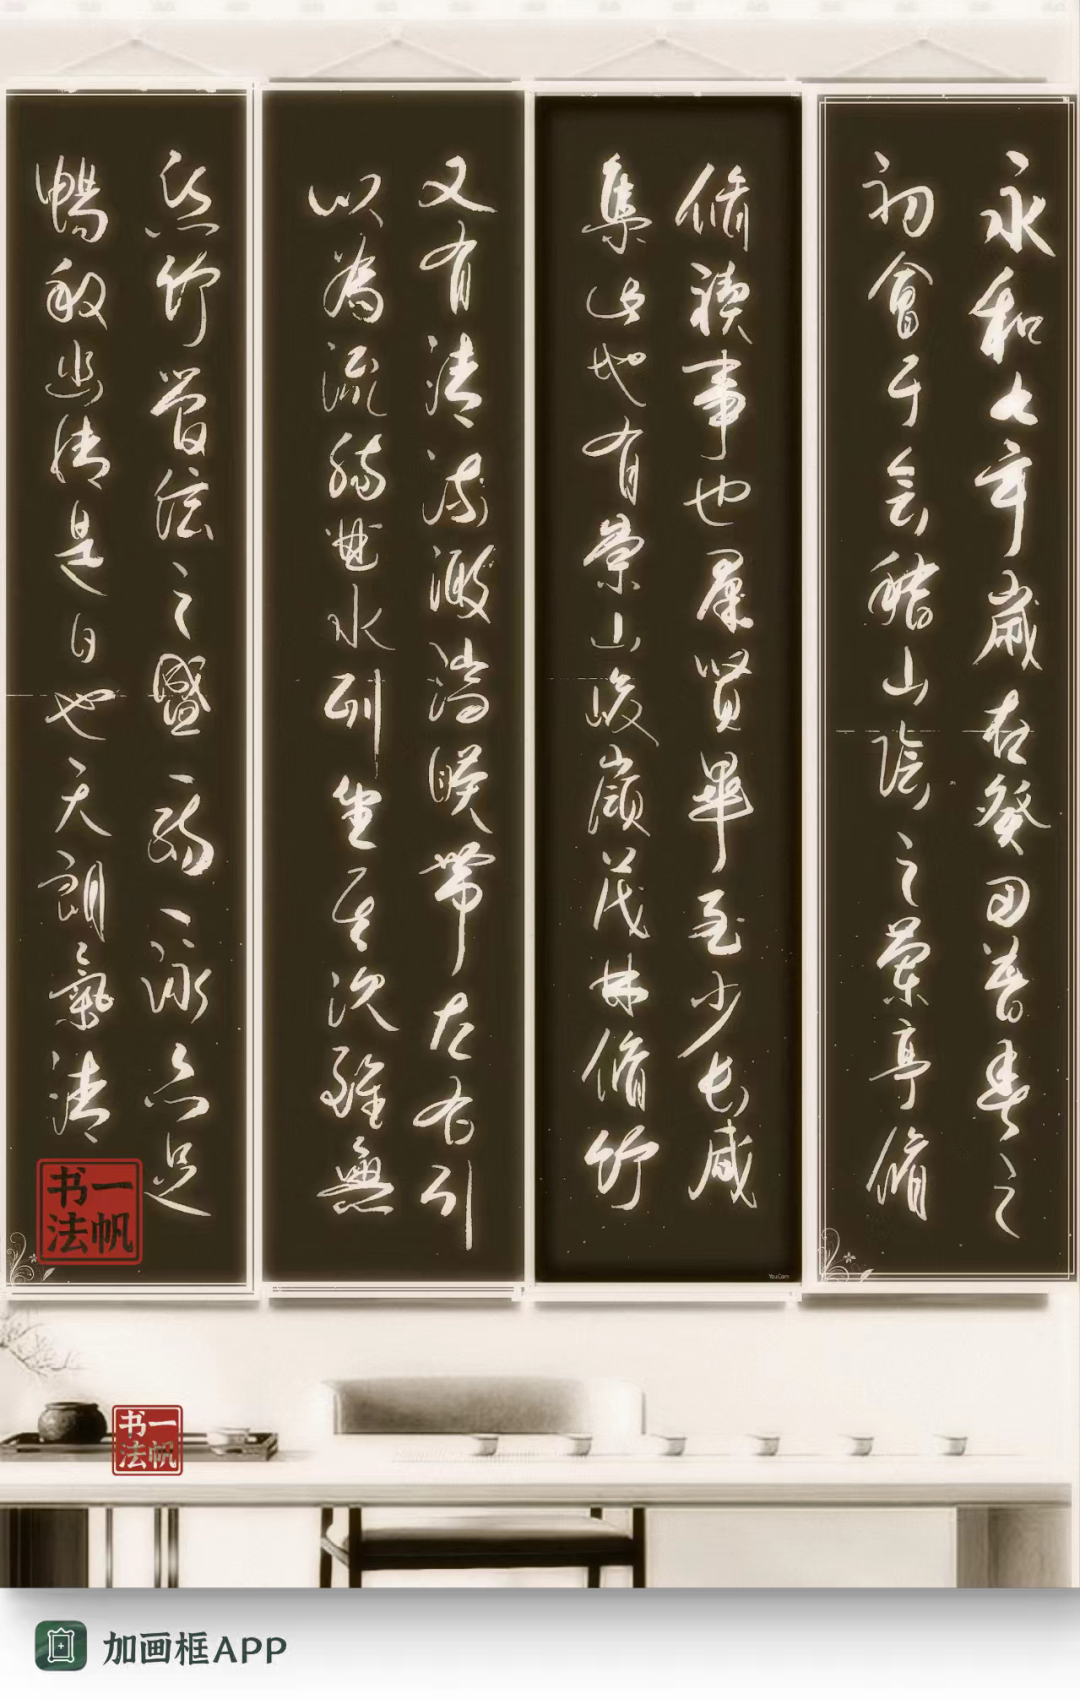 永和九年歲在癸丑暮春之
初會于會稽山陰之蘭亭脩
脩禊事也羣賢畢至少長咸
集此地有崇山峻嶺茂林脩竹
又有清流激湍暎帶左右引
以為流觴曲水列坐其次雖無
絲竹管弦之盛一觴一詠亦足
暢敘幽情是日也天朗氣清
一帆
书法
一帆
书法
YouCam
加画框APP